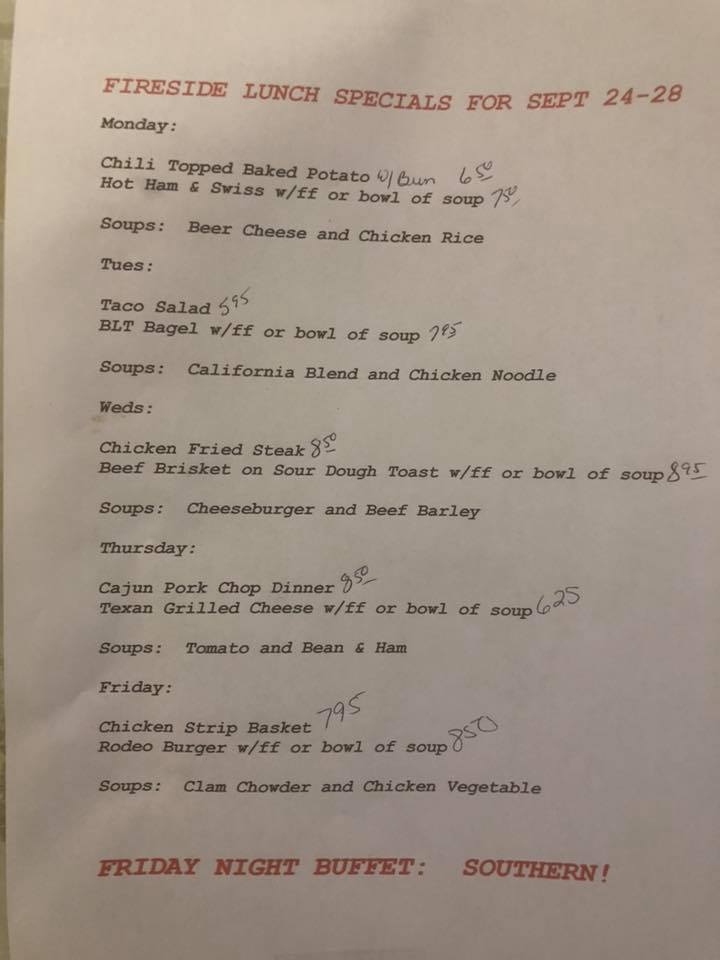 FIRESIDE LUNCH SPECIALS FOR SEPT 24-28
Monday:
Chili Topped Baked Potato w/ Bun 6 50
Hot Ham & Swiss w/ff or bowl of soup 7 50
Soups: Beer Cheese and Chicken Rice
Tues:
Taco Salad 5 95
BLT Bagel w/ff or bowl of soup 7 95
Soups: California Blend and Chicken Noodle
Weds:
Chicken Fried Steak 8 50
Beef Brisket on Sour Dough Toast w/ff or bowl of soup 8 95
Soups: Cheeseburger and Beef Barley
Thursday:
Cajun Pork Chop Dinner 8 50
Texan Grilled Cheese w/ff or bowl of soup 6 25
Soups: Tomato and Bean & Ham
Friday:
Chicken Strip Basket 7 95
Rodeo Burger w/ff or bowl of soup 8 50
Soups: Clam Chowder and Chicken Vegetable
FRIDAY NIGHT BUFFET: SOUTHERN!